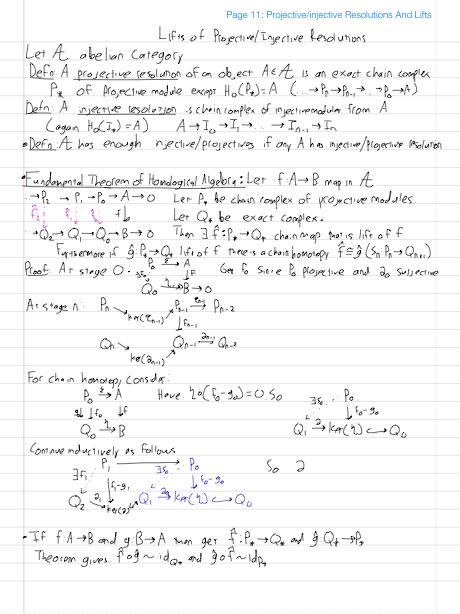 Page 11: Projective/injective Resolutions And Lifts
Lifts of Projective/Injective Resolutions
Let A abelian Category
Defn: A projective resolution of an object A∈A is an exact chain complex
P* of projective modules except H₀(P*)=A (...→Pₙ→Pₙ₋₁→...→P₀→A)
Defn: A injective resolution is chain complex of injective modules from A
(again H₀(I*)=A) A→I₀→I₁→...→Iₙ₋₁→Iₙ
• Defn: A has enough injective/projectives if any A has injective/projective resolution
• Fundamental Theorem of Homological Algebra: Let f:A→B map in A
→P₂→P₁→P₀→A→0 Let P* be chain complex of projective modules.
f̂₂ f̂₁ f̂₀ f↓ Let Q* be exact complex.
→Q₂→Q₁→Q₀→B→0 Then ∃f̂:P*→Q* chain map that is lift of f
Furthermore if ĝ:P*→Q* lift of f there is a chain homotopy f̂≅ĝ (Sₙ:Pₙ→Qₙ₊₁)
Proof: At stage 0: P₀ → A Get f₀ since P₀ projective and surjective
∃f₀ ↓f
Q₀ → B→0
At stage n: Pₙ Pₙ₋₁ → Pₙ₋₂
↓fₙ₋₁
Qₙ Qₙ₋₁ → Qₙ₋₂
ker(∂ₙ₋₁)
For chain homotopy, consider:
P₀ → A Have η∘(f₀-g₀)=0. So ∃s₀ P₀
g₀↓↓f₀ ↓f ↓f₀-g₀
Q₀ → B Q₁ → ker(η) ↪ Q₀
Continue inductively as follows
P₁ → P₀ S₀ ∂
↓f₁-g₁ ∃s₀ ↓f₀-g₀
Q₂ Q₁ → ker(η) ↪ Q₀
• If f:A→B and g:B→A then get f̂:P*→Q* and ĝ:Q*→P*
Theorem gives f̂∘ĝ ~ id_Q* and ĝ∘f̂ ~ id_P*